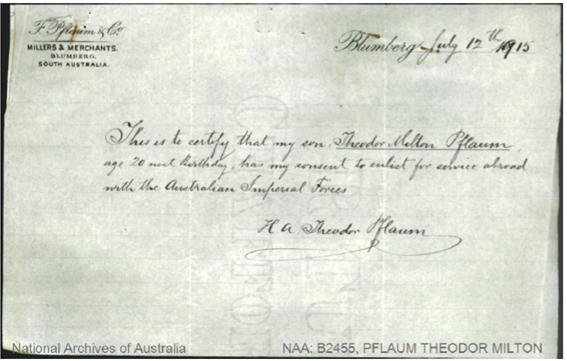 F. Pflaum & Co
MILLERS & MERCHANTS.
BLUMBERG,
SOUTH AUSTRALIA.
Blumberg July 12th 1915
This is to certify that my son Theodor Milton Pflaum
age 20 next Birthday, has my consent to enlist for service abroad
with the Australian Imperial Forces
H A Theodor Pflaum
National Archives of Australia
NAA: B2455, PFLAUM THEODOR MILTON